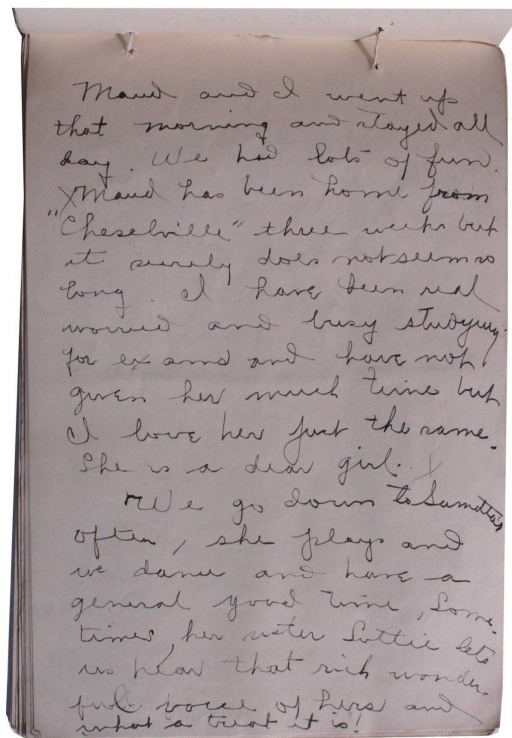 Maud and I went up
that morning and stayed all
day. We had lots of fun.
x Maud has been home from
"Cheselville" three weeks but
it surely does not seem so
long. I have been real
worried and busy studying
for exams and have not
given her much time but
I love her just the same.
She is a dear girl. x
We go down to
often, she plays and
we dance and have a
general good time, Some-
times, her sister Lottie lets
us hear that rich wonder-
ful voice of hers and
what a treat it is!